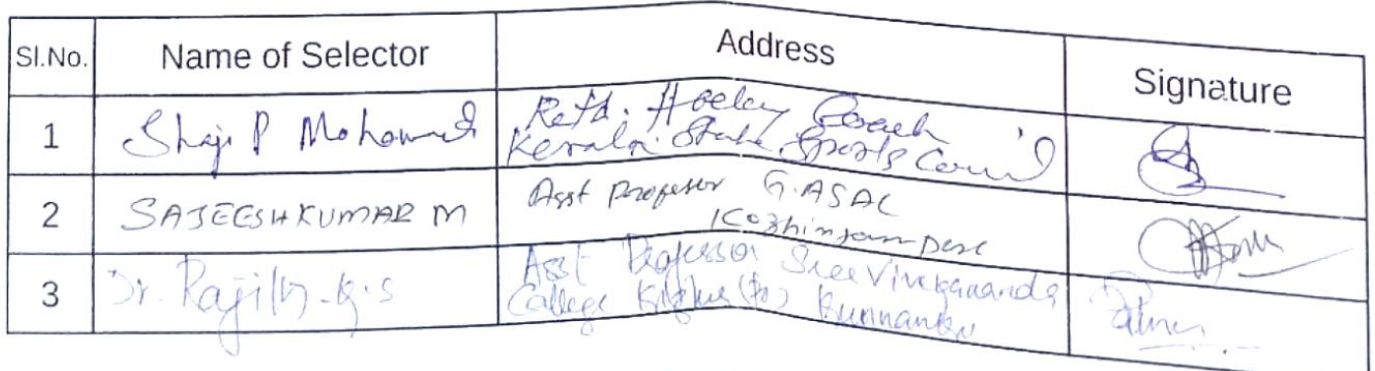 Sl.No. Name of Selector Address Signature
1 Shaji P Mohamed Retd. Hockey Coach
Kerala State Sports Council
2 SAJEESHKUMAR M Asst Professor G.ASAC
Kozhinjampara
3 Dr. K.S Asst Professor Sree Vivekananda
College (Po) Kunnamku